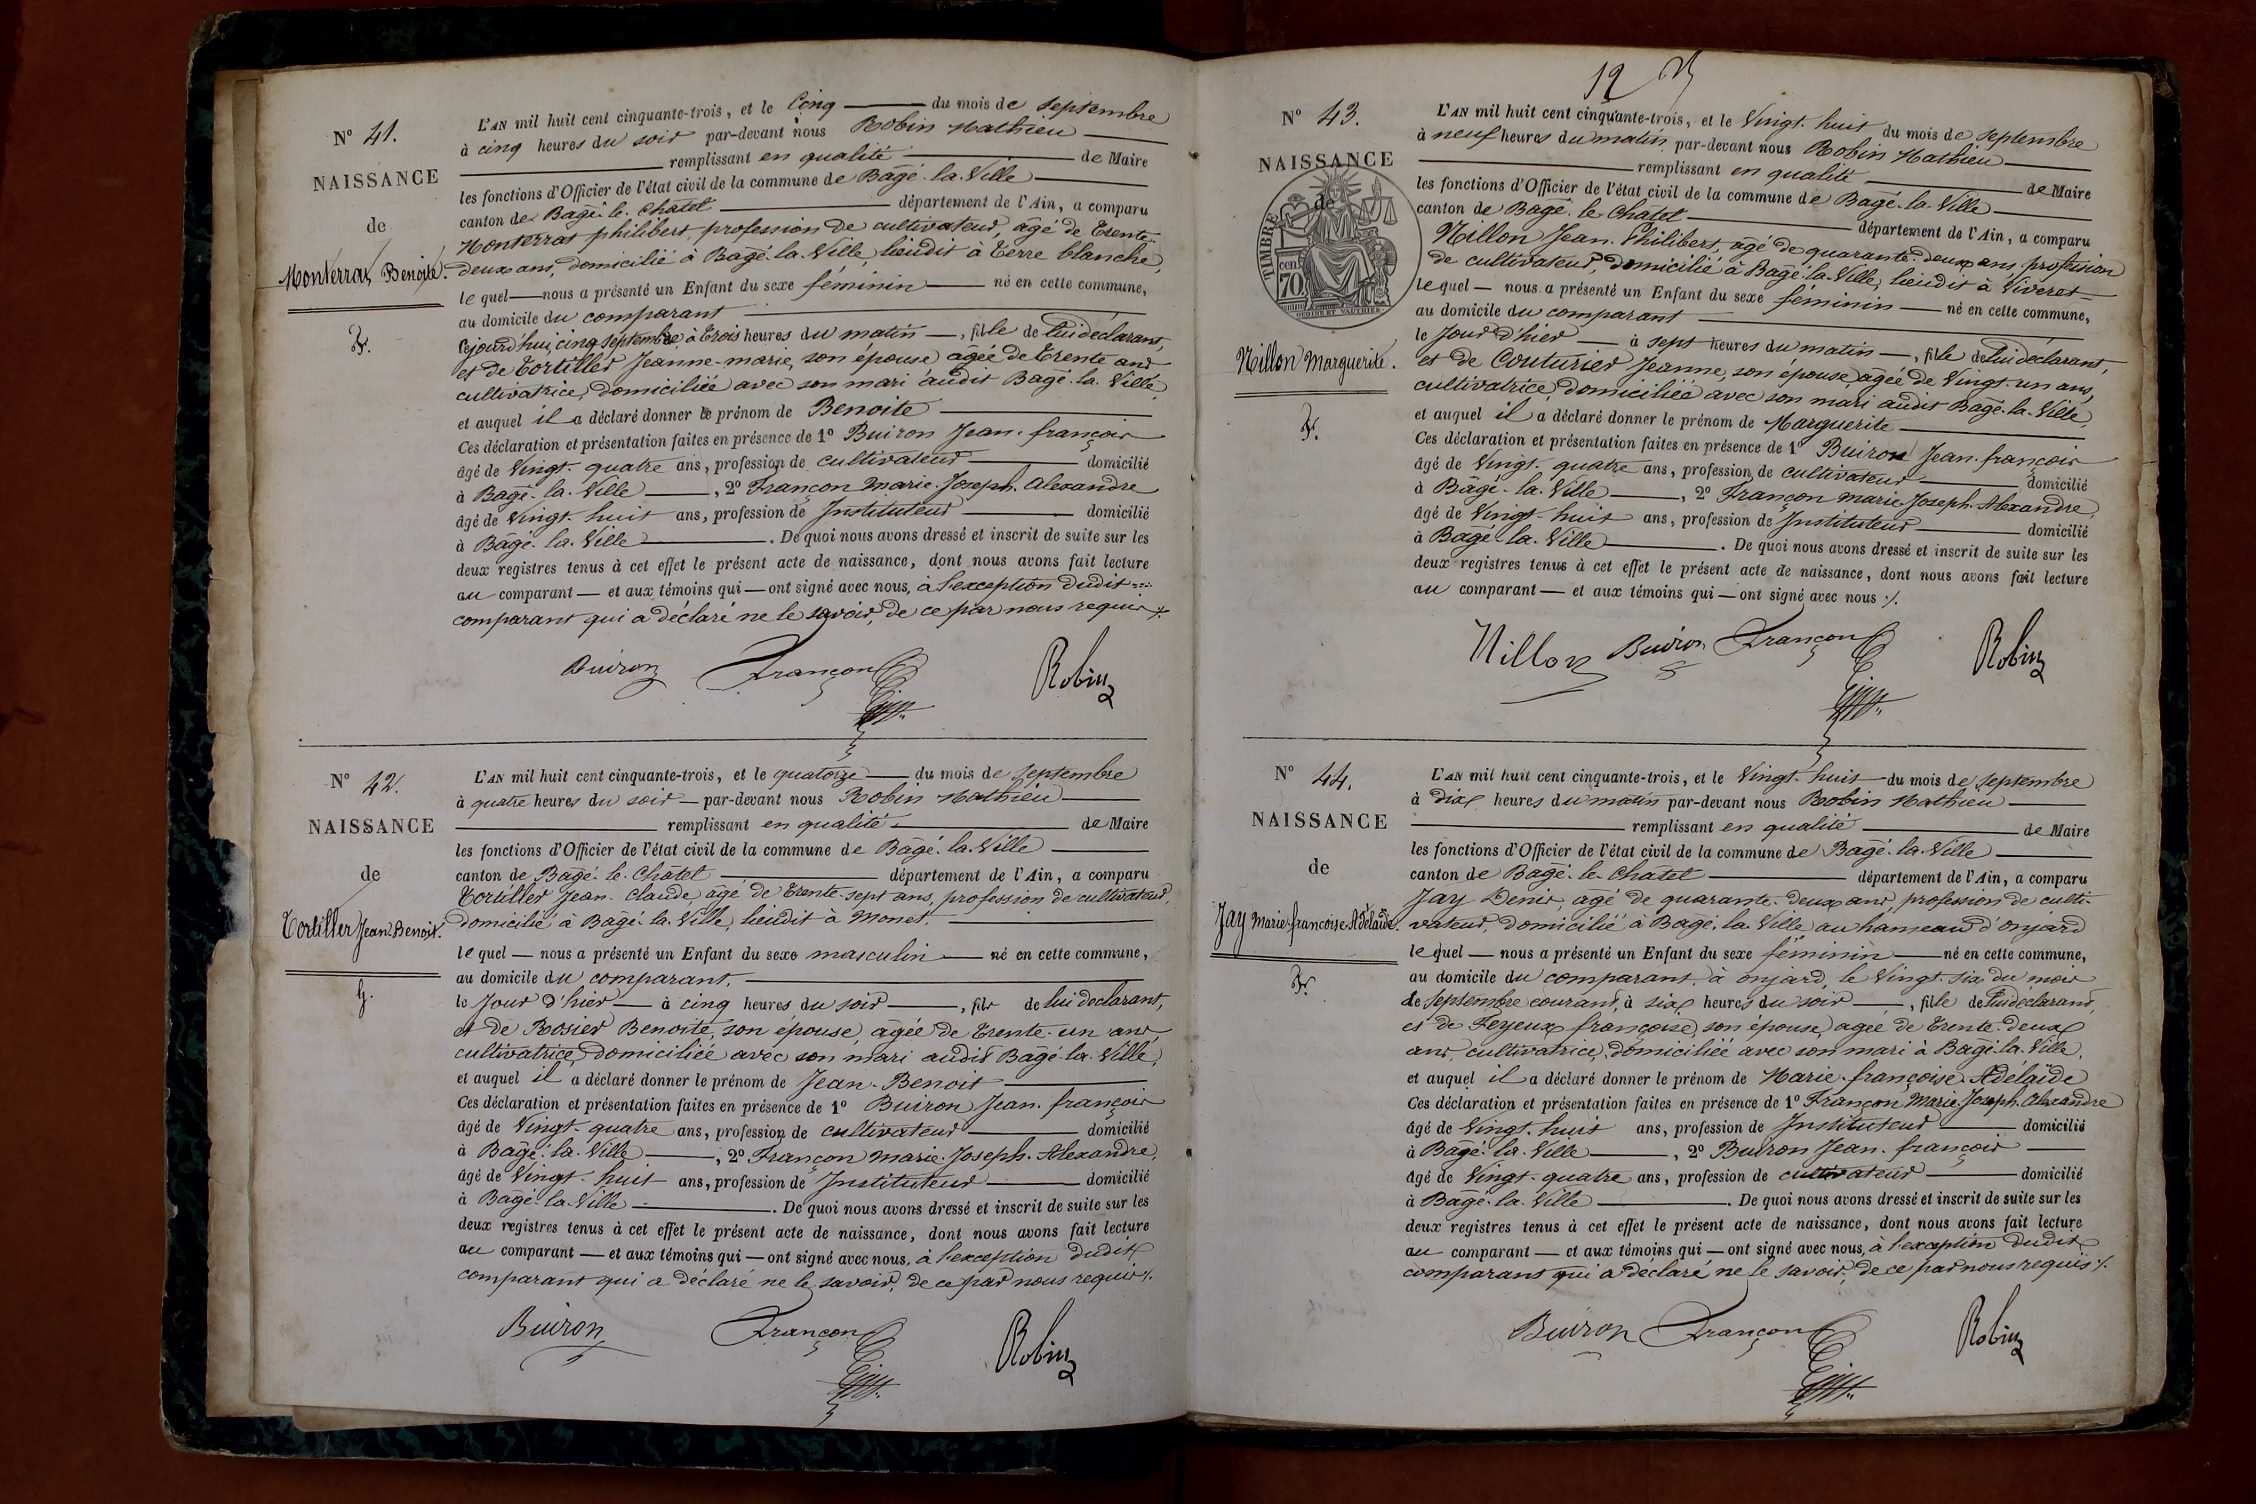 N° 41.
NAISSANCE
de
Monterrat Benoite.
F.
L'AN mil huit cent cinquante-trois, et le Cinq du mois de Septembre
à cinq heures du soir par-devant nous Robin Mathieu
remplissant en qualité de Maire
les fonctions d'Officier de l'état civil de la commune de Bagé-la-Ville
canton de Bagé-le-Chatel département de l'Ain, a comparu
Monterrat philibert, profession de cultivateur, âgé de Trente-
deux ans, domicilié à Bagé-la-Ville, lieudit à Terre blanche,
lequel nous a présenté un Enfant du sexe féminin né en cette commune,
au domicile du comparant
cejourd'hui, cinq Septembre à trois heures du matin, fille de lui déclarant,
et de Tortiller Jeanne-marie, son épouse, âgée de Trente ans
cultivatrice, domiciliée avec son mari audit Bagé-la-Ville,
et auquel il a déclaré donner le prénom de Benoite
Ces déclaration et présentation faites en présence de 1° Buiron Jean-françois
âgé de Vingt-quatre ans, profession de cultivateur domicilié
à Bagé-la-Ville, 2° Françon Marie-Joseph-Alexandre
âgé de Vingt-huit ans, profession de Instituteur domicilié
à Bagé-la-Ville. De quoi nous avons dressé et inscrit de suite sur les
deux registres tenus à cet effet le présent acte de naissance, dont nous avons fait lecture
au comparant et aux témoins qui ont signé avec nous, à l'exception dudit
comparant qui a déclaré ne le savoir, de ce par nous requis ./.
Buiron Françon Robin
N° 42.
NAISSANCE
de
Tortiller Jean-Benoit.
G.
L'AN mil huit cent cinquante-trois, et le quatorze du mois de Septembre
à quatre heures du soir par-devant nous Robin Mathieu
remplissant en qualité de Maire
les fonctions d'Officier de l'état civil de la commune de Bagé-la-Ville
canton de Bagé-le-Chatel département de l'Ain, a comparu
Tortiller Jean-Claude, âgé de Trente-sept ans, profession de cultivateur,
domicilié à Bagé-la-Ville, lieudit à Monet.
lequel nous a présenté un Enfant du sexe masculin né en cette commune,
au domicile du comparant.
le Jour d'hier à cinq heures du soir, fils de lui déclarant,
et de Rosier Benoite, son épouse, âgée de Trente-un ans,
cultivatrice, domiciliée avec son mari audit Bagé-la-Ville,
et auquel il a déclaré donner le prénom de Jean-Benoit
Ces déclaration et présentation faites en présence de 1° Buiron Jean-françois
âgé de Vingt-quatre ans, profession de cultivateur domicilié
à Bagé-la-Ville, 2° Françon Marie-Joseph-Alexandre,
âgé de Vingt-huit ans, profession de Instituteur domicilié
à Bagé-la-Ville. De quoi nous avons dressé et inscrit de suite sur les
deux registres tenus à cet effet le présent acte de naissance, dont nous avons fait lecture
au comparant et aux témoins qui ont signé avec nous, à l'exception dudit
comparant qui a déclaré ne le savoir, de ce par nous requis ./.
Buiron Françon Robin
12
N° 43.
NAISSANCE
de
TIMBRE
cent
70
OUDINÉ ET VAUTHIER
Nillon Marguerite.
F.
L'AN mil huit cent cinquante-trois, et le Vingt-huit du mois de Septembre
à neuf heures du matin par-devant nous Robin Mathieu
remplissant en qualité de Maire
les fonctions d'Officier de l'état civil de la commune de Bagé-la-Ville
canton de Bagé-le-Chatel département de l'Ain, a comparu
Nillon Jean-Philibert, âgé de quarante-deux ans, profession
de cultivateur, domicilié à Bagé-la-Ville, lieudit à Viveret
lequel nous a présenté un Enfant du sexe féminin né en cette commune,
au domicile du comparant
le Jour d'hier à sept heures du matin, fille de lui déclarant,
et de Couturier Jeanne, son épouse, âgée de Vingt-un ans,
cultivatrice, domiciliée avec son mari audit Bagé-la-Ville,
et auquel il a déclaré donner le prénom de Marguerite
Ces déclaration et présentation faites en présence de 1° Buiron Jean-françois
âgé de Vingt-quatre ans, profession de cultivateur domicilié
à Bagé-la-Ville, 2° Françon Marie-Joseph-Alexandre,
âgé de Vingt-huit ans, profession de Instituteur domicilié
à Bagé-la-Ville. De quoi nous avons dressé et inscrit de suite sur les
deux registres tenus à cet effet le présent acte de naissance, dont nous avons fait lecture
au comparant et aux témoins qui ont signé avec nous ./.
Nillon Buiron Françon Robin
N° 44.
NAISSANCE
de
Jay Marie-françoise-Adélaïde.
F.
L'AN mil huit cent cinquante-trois, et le Vingt-huit du mois de Septembre
à dix heures du matin par-devant nous Robin Mathieu
remplissant en qualité de Maire
les fonctions d'Officier de l'état civil de la commune de Bagé-la-Ville
canton de Bagé-le-Chatel département de l'Ain, a comparu
Jay Denis, âgé de quarante-deux ans, profession de culti-
vateur, domicilié à Bagé-la-Ville au hameau d'onjard
lequel nous a présenté un Enfant du sexe féminin né en cette commune,
au domicile du comparant, à onjard, le Vingt-six du mois
de Septembre courant, à six heures du soir, fille de lui déclarant,
et de Feyeux françoise, son épouse, âgée de Trente-deux
ans, cultivatrice, domiciliée avec son mari à Bagé-la-Ville,
et auquel il a déclaré donner le prénom de Marie-françoise-Adélaïde
Ces déclaration et présentation faites en présence de 1° Françon Marie-Joseph-Alexandre
âgé de Vingt-huit ans, profession de Instituteur domicilié
à Bagé-la-Ville, 2° Buiron Jean-françois
âgé de Vingt-quatre ans, profession de cultivateur domicilié
à Bagé-la-Ville. De quoi nous avons dressé et inscrit de suite sur les
deux registres tenus à cet effet le présent acte de naissance, dont nous avons fait lecture
au comparant et aux témoins qui ont signé avec nous, à l'exception dudit
comparant qui a déclaré ne le savoir, de ce par nous requis ./.
Buiron Françon Robin